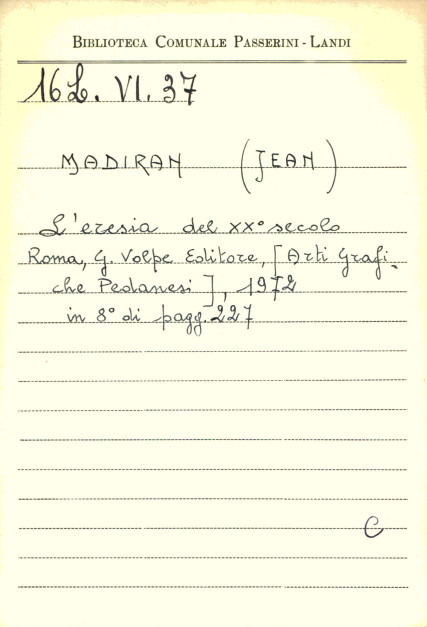 BIBLIOTECA COMUNALE PASSERINI - LANDI
16 L. VI. 37
MADIRAN (JEAN)
L'eresia del XX° secolo
Roma, G. Volpe Editore, [Arti Grafi-
che Pedanesi], 1972
in 8° di pagg. 227
C